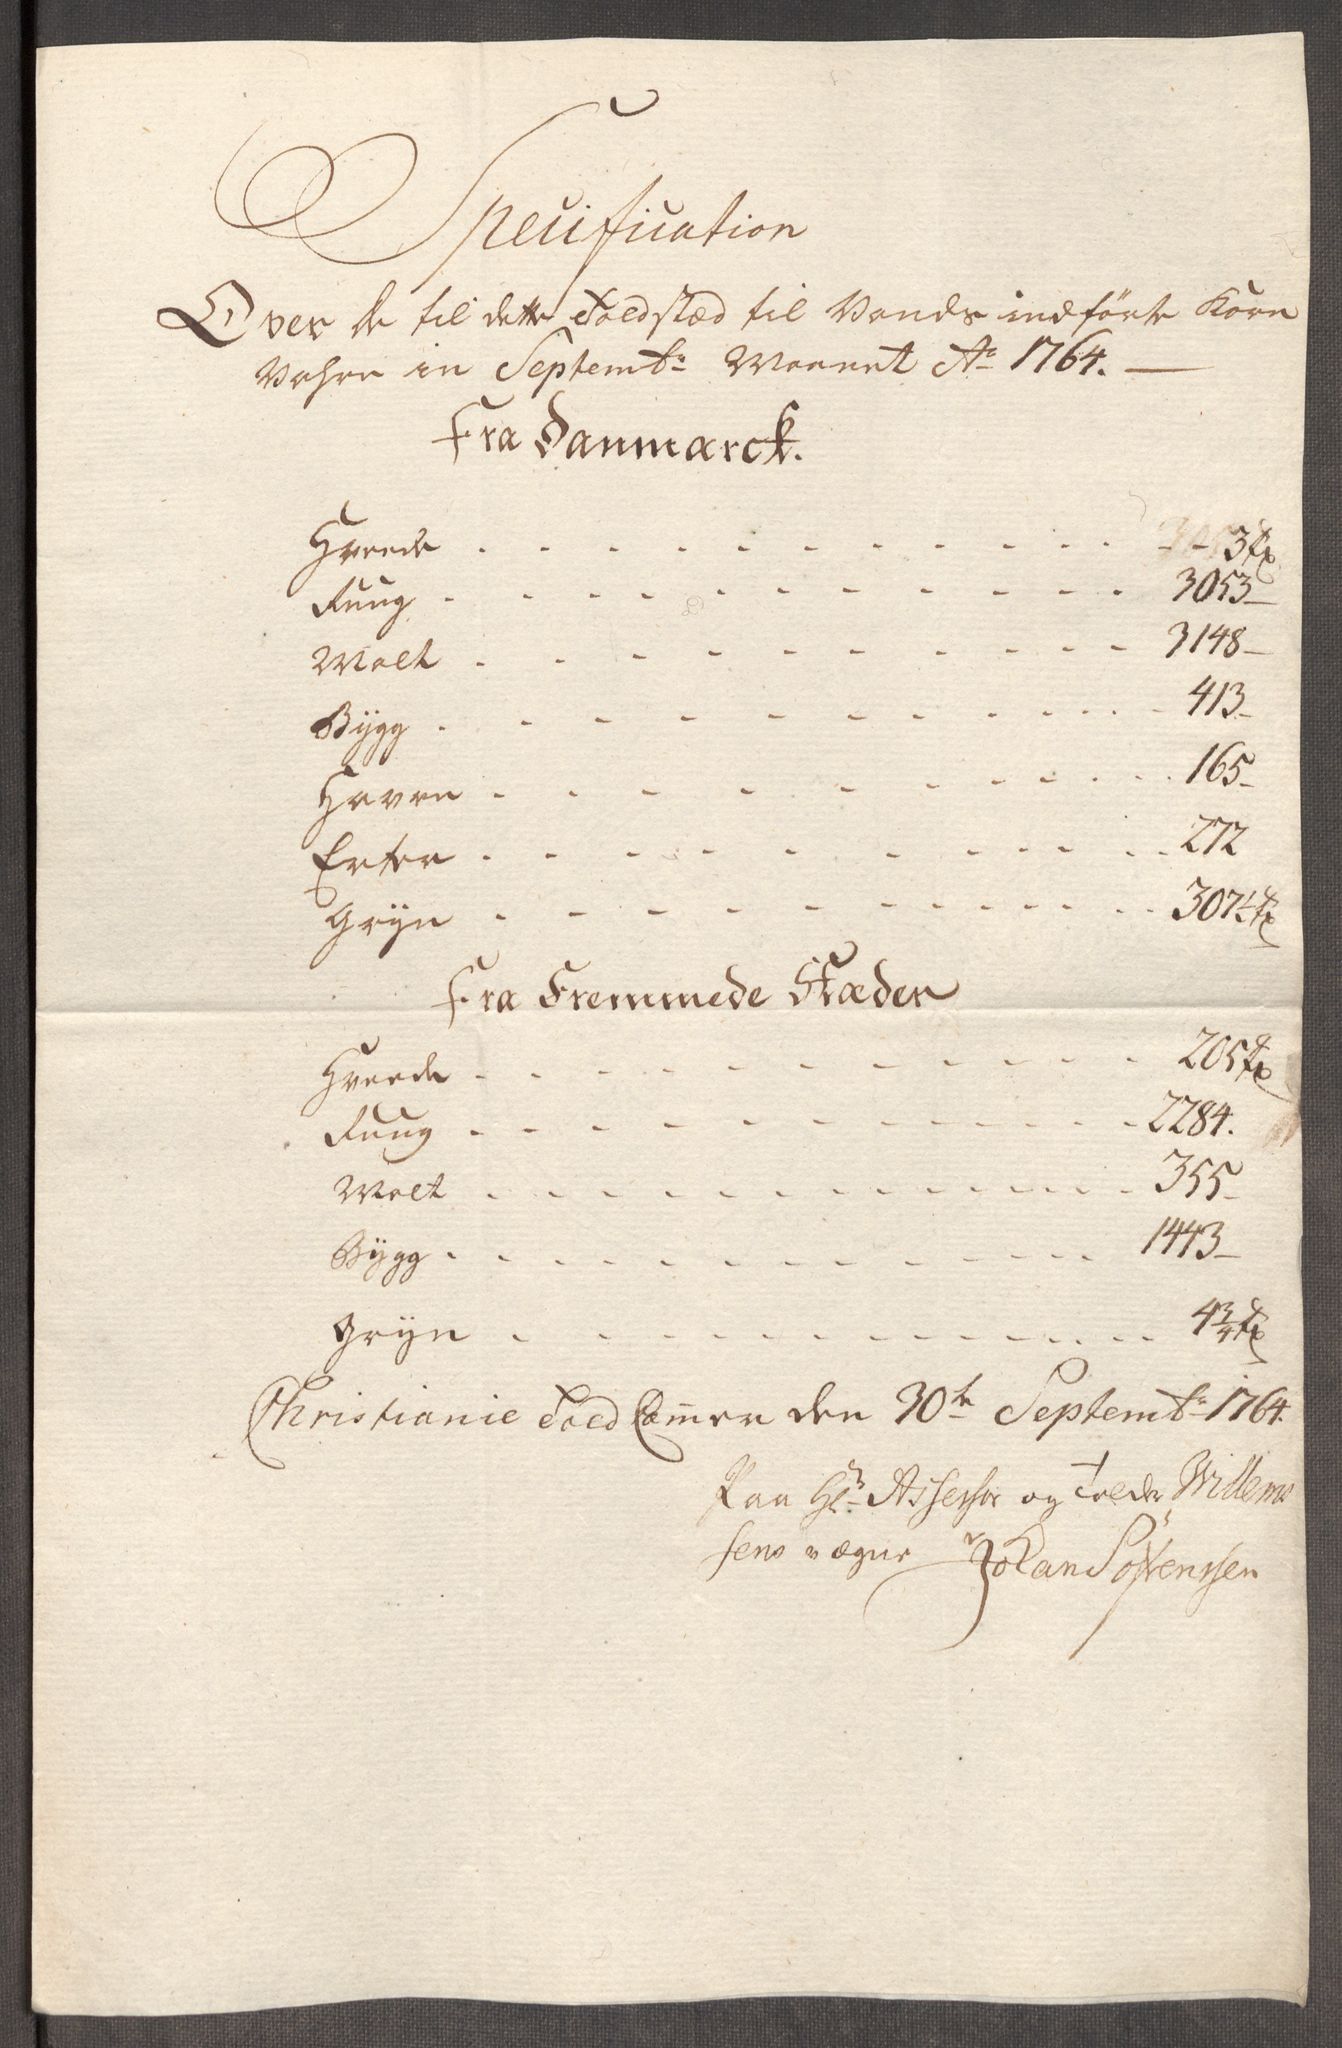 Specification
Over de til dette Toldstæd til Vands indförte Korn
Vahre in Septembr Maanet Ao 1764.
Fra Danmarck.
Hveede - - - - - - - - - - - - 3 tr
Ruug - - - - - - - - - - - - 3053 -
Malt - - - - - - - - - - - - 3148 -
Bÿgg - - - - - - - - - - - - 413 -
Havre - - - - - - - - - - - - 165 -
Erter - - - - - - - - - - - - 272
Grÿn - - - - - - - - - - - - 307 tr
Fra Fremmede Stæder
Hveede - - - - - - - - - - - - 205 tr
Ruug - - - - - - - - - - - - 2284.
Malt - - - - - - - - - - - - 355 -
Bÿgg - - - - - - - - - - - - 1443 -
Grÿn - - - - - - - - - - - - 4 3/4 tr
Christianie Told Cam̄er den 30te Septembr 1764.
Paa Hr Assessor og Tolder Willem
sens vægne Johan Sörenssen